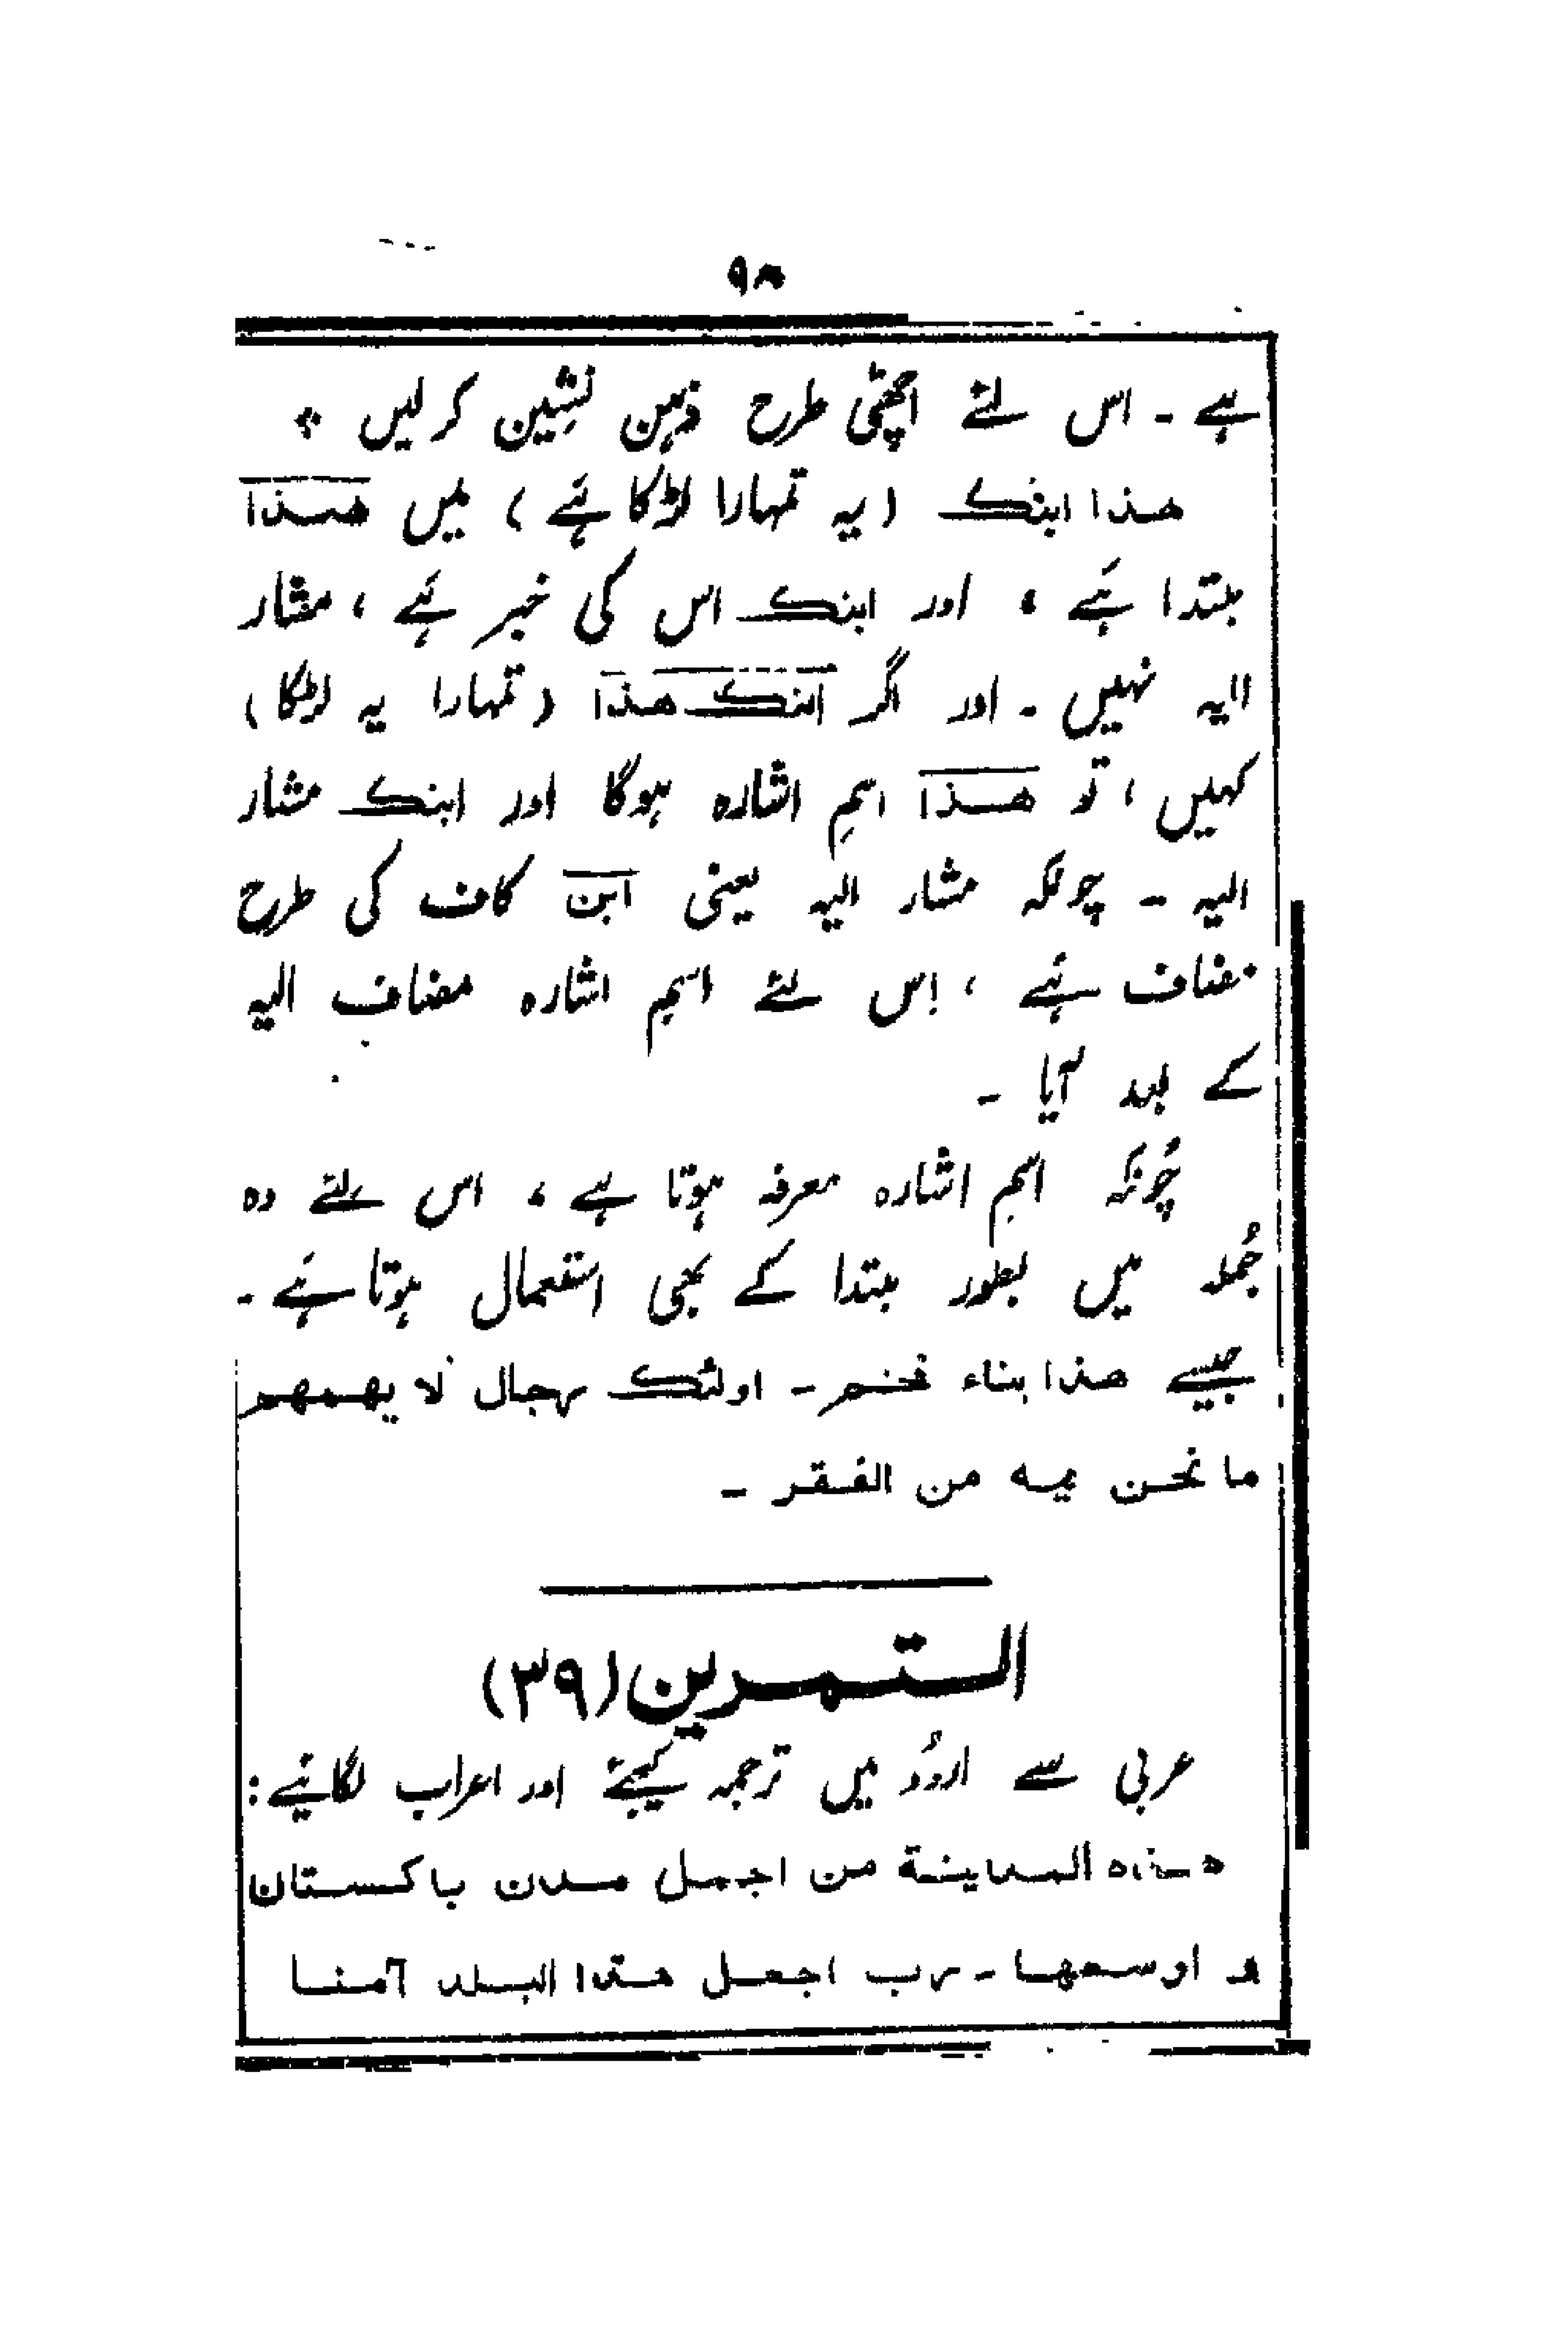 ۹۸
ہے ۔ اس لئے اچھی طرح ذہن نشین کر لیں ٭
ھذا ابنک (یہ تمہارا لڑکا ہے) میں ھذا
مبتدا ہے ، اور ابنک اس کی خبر ہے ، مشار
الیہ نہیں ۔ اور اگر ابنک ھذا (تمہارا یہ لڑکا)
کہیں ، تو ھذا اسمِ اشارہ ہوگا اور ابنک مشار
الیہ ۔ چونکہ مشار الیہ یعنی ابن کاف کی طرح
مضاف ہے ، اِس لئے اسمِ اشارہ مضاف الیہ
کے بعد آیا ۔
چُونکہ اسمِ اشارہ معرفہ ہوتا ہے ، اس لئے وہ
جُملہ میں بطور مبتدا کے بھی استعمال ہوتا ہے ۔
جیسے ھذا بناء فخم ۔ اولئک رجال لا یھمھم
ما نحن فیہ من الفقر ۔
التمرین (۳۹)
عربی سے اردُو میں ترجمہ کیجئے اور اعراب لگائیے :
ھذہ المدینۃ من اجمل مدن باکستان
و اوسعھا ۔ رب اجعل ھذا البلد آمنا